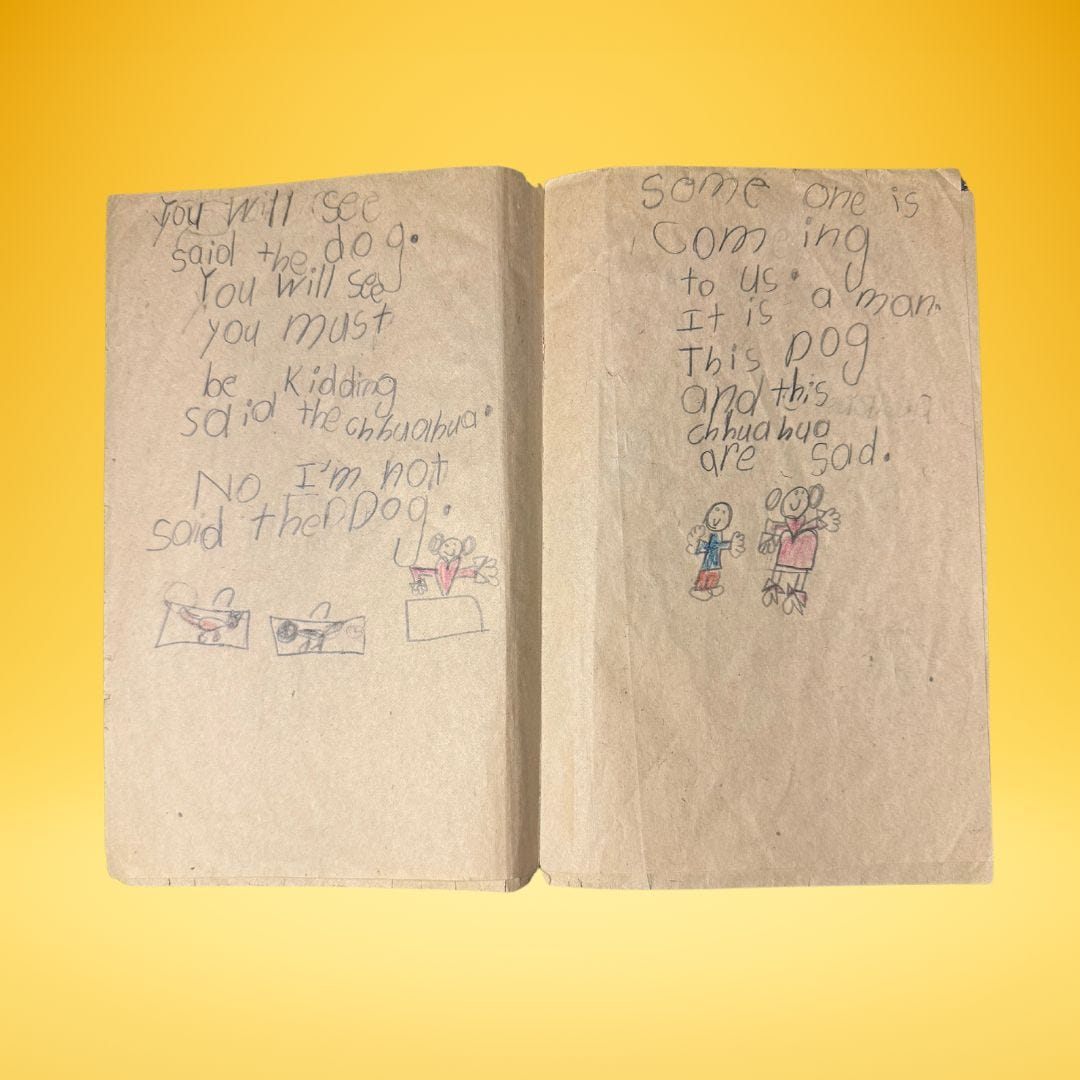 You will see
said the dog.
You will see
you must
be kidding
said the chhuahua.
No I'm not
said the Dog.
Some one is
Comeing
to us.
It is a man.
This Dog
and this
chhuahua
are sad.